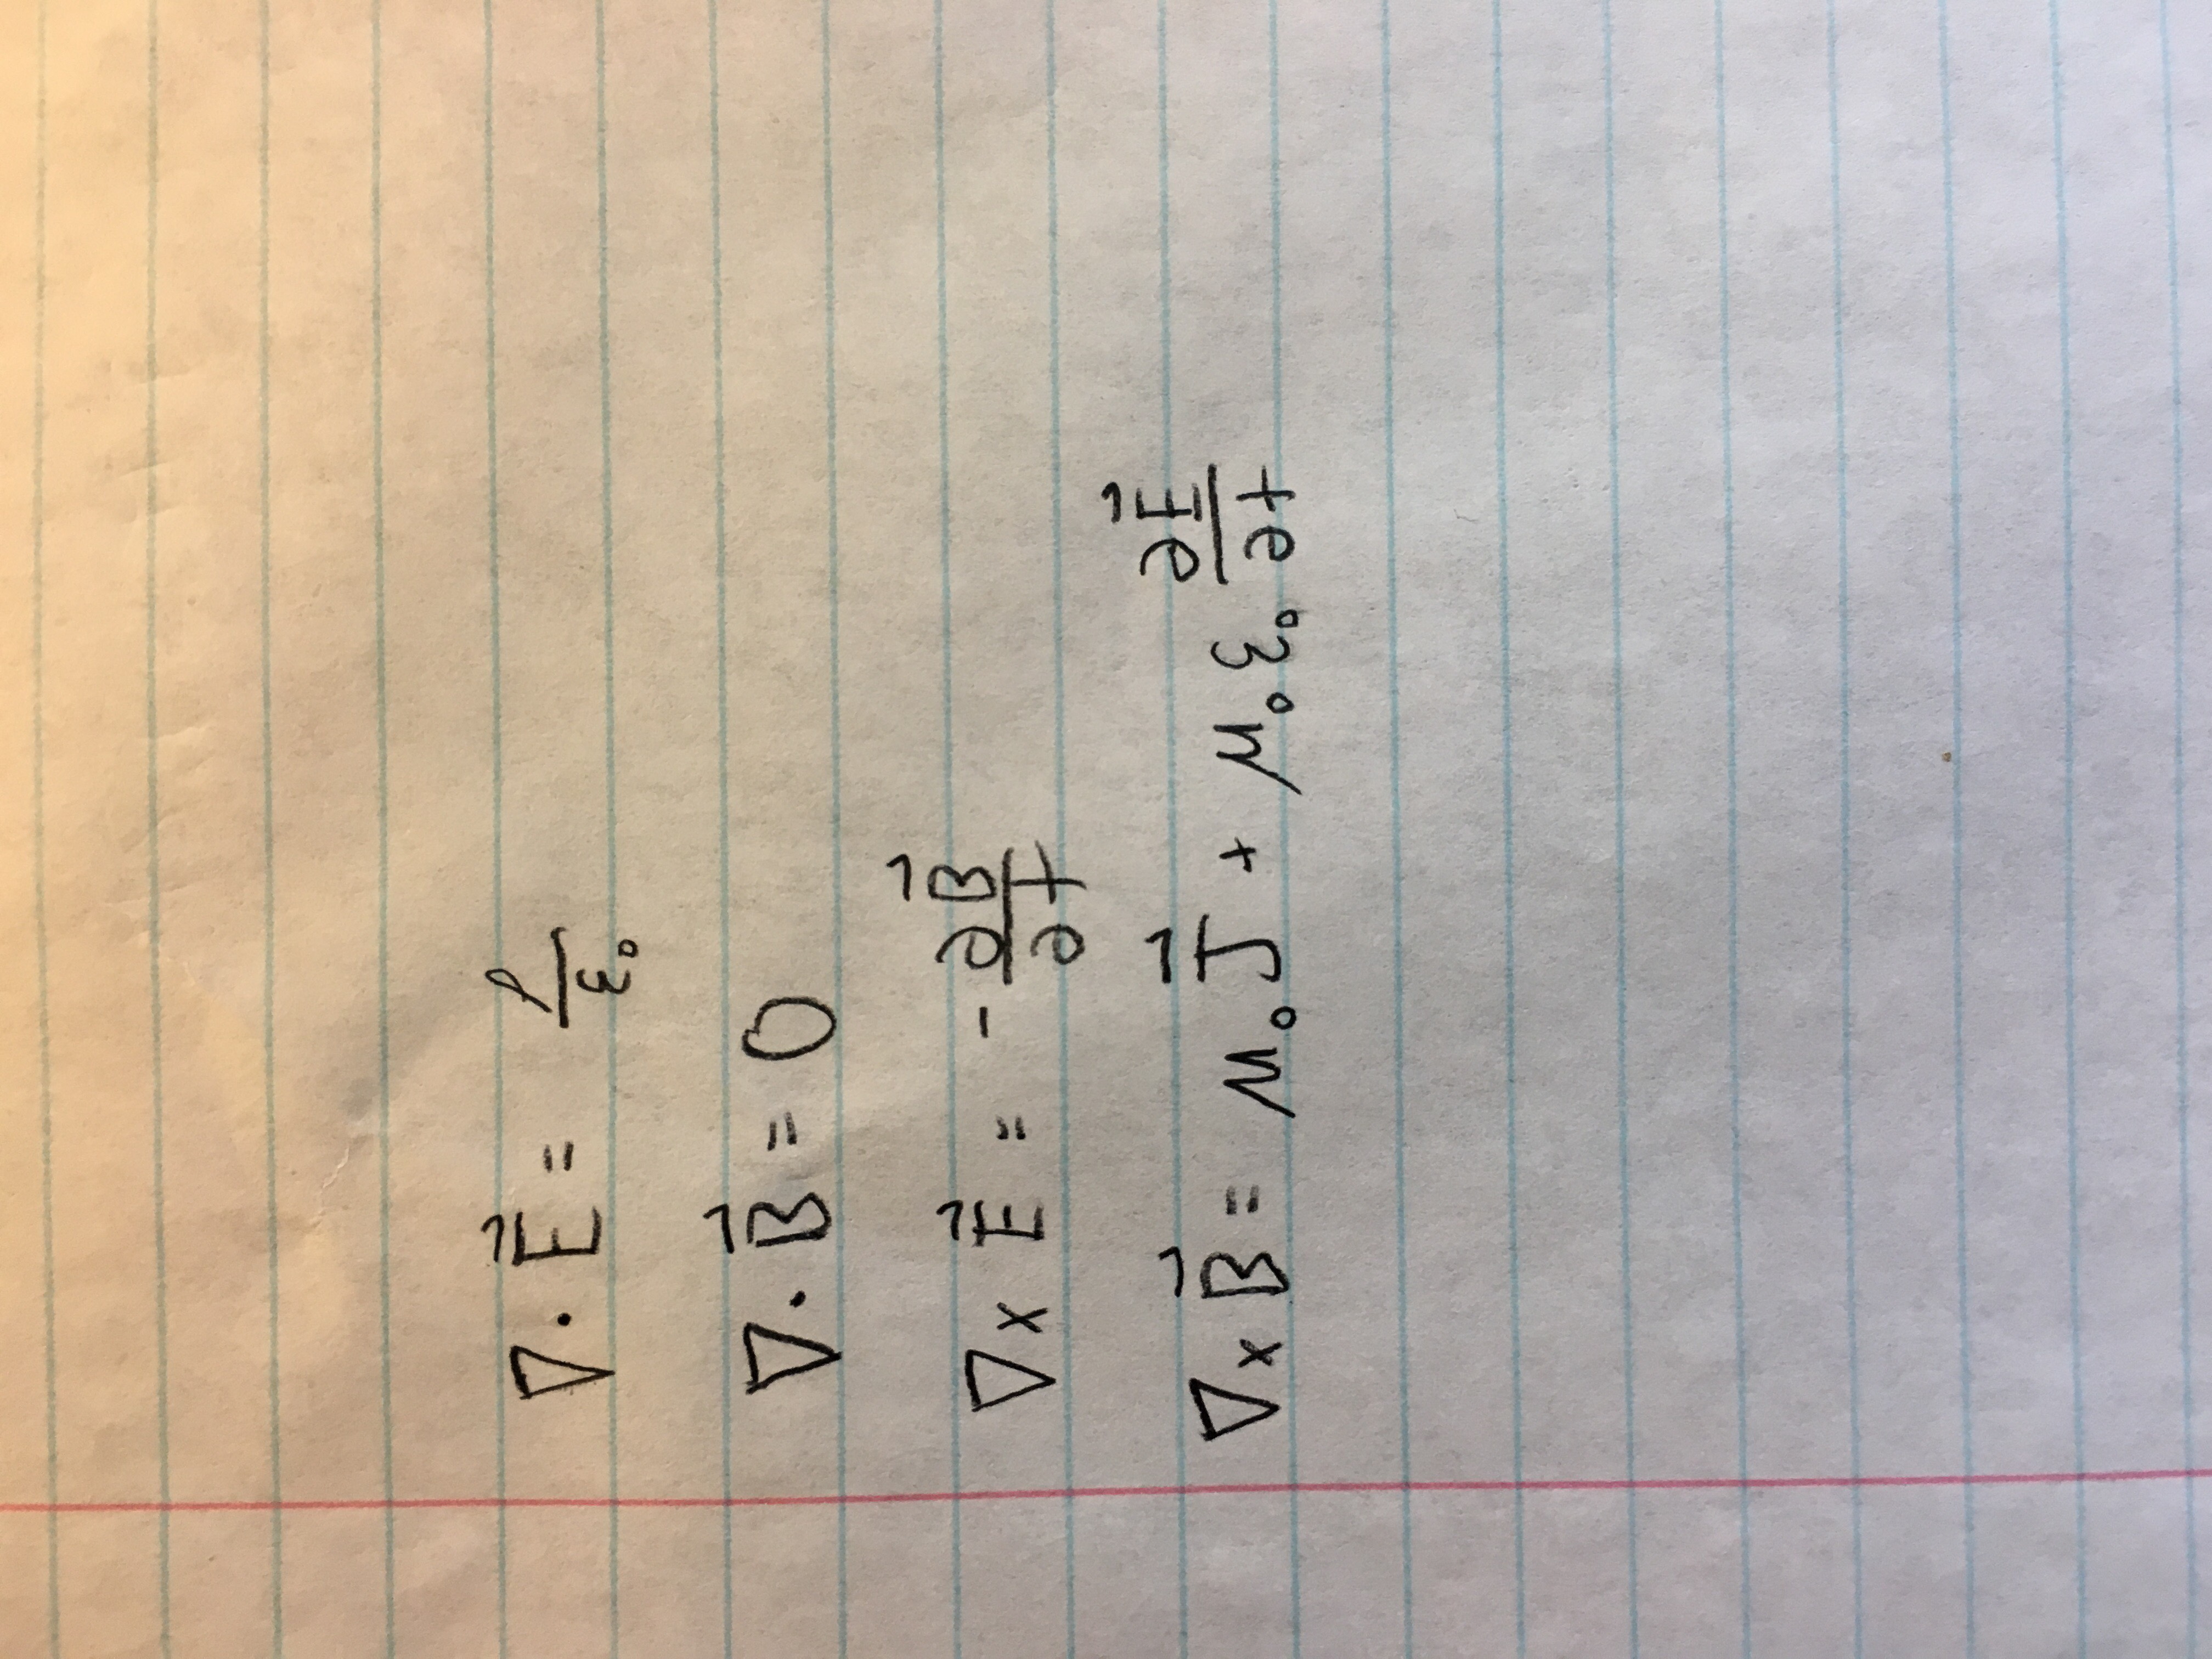 ∇ · E⃗ = ρ/ε₀
∇ · B⃗ = 0
∇ × E⃗ = -∂B⃗/∂t
∇ × B⃗ = μ₀J⃗ + μ₀ε₀ ∂E⃗/∂t